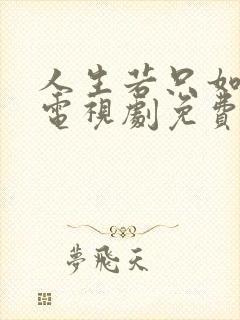 人生若只如
電視劇免費
夢飛天